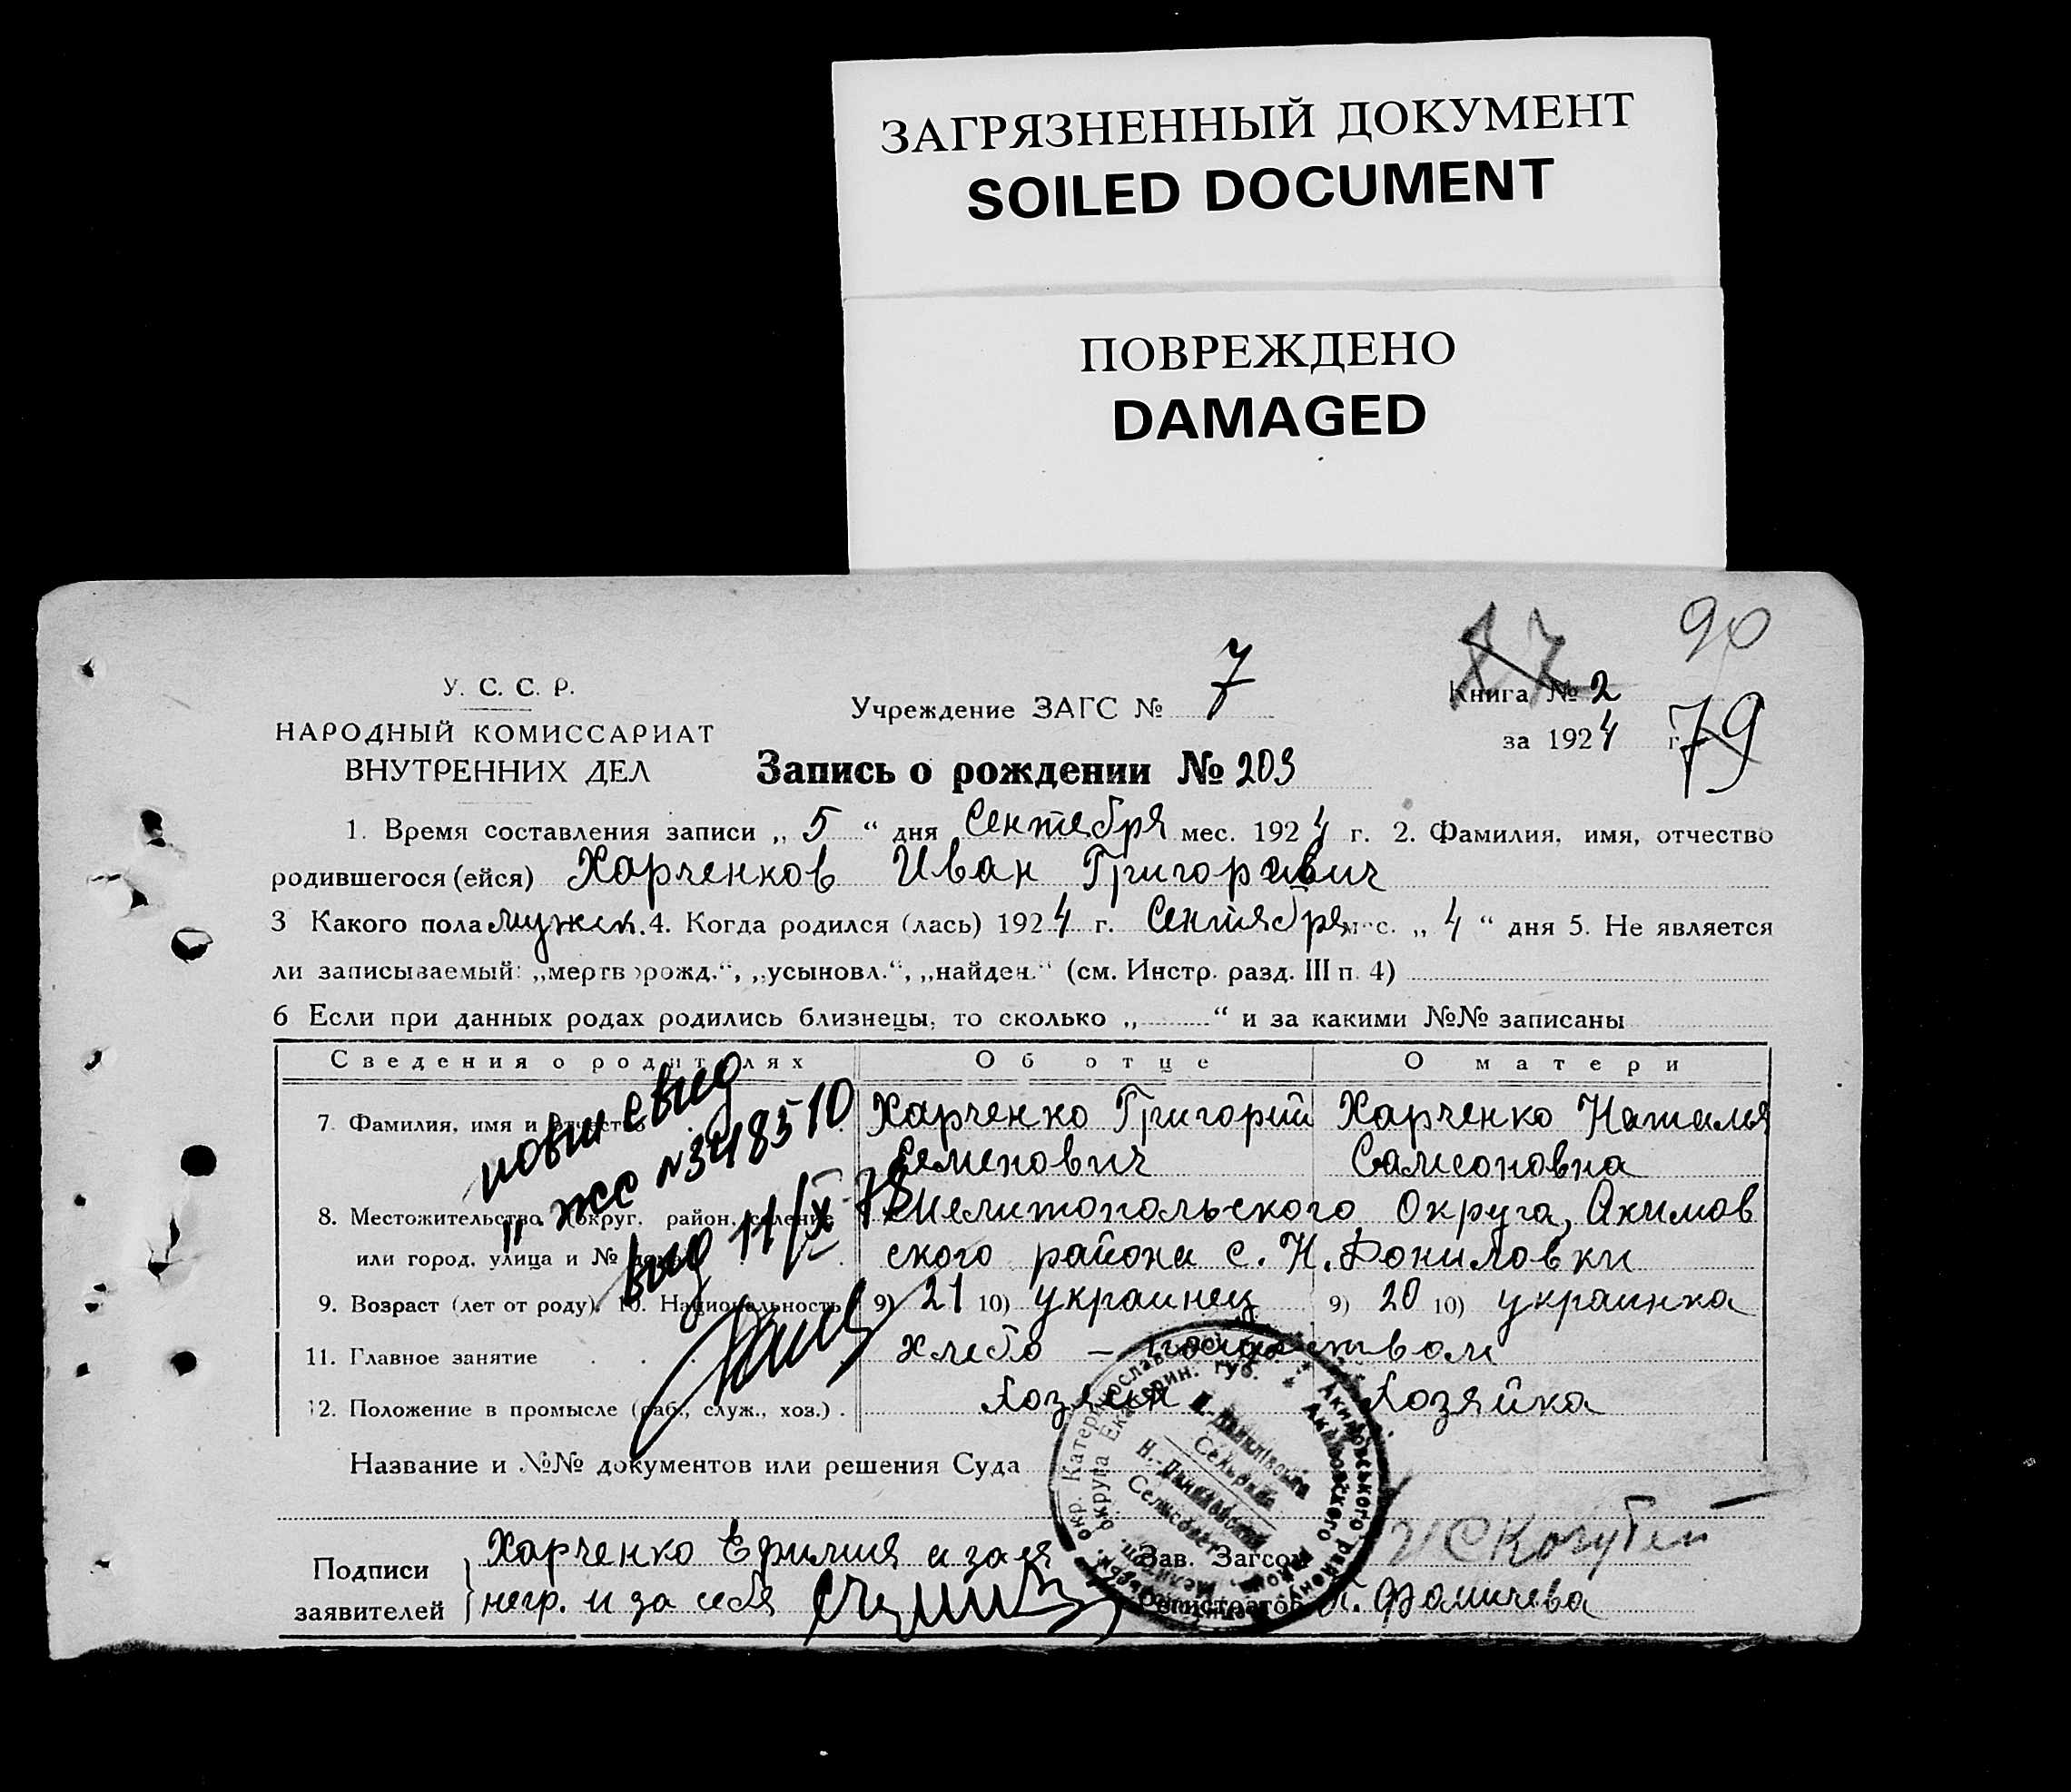 ЗАГРЯЗНЕННЫЙ ДОКУМЕНТ
SOILED DOCUMENT
ПОВРЕЖДЕНО
DAMAGED
90
У. С. С. Р.
НАРОДНЫЙ КОМИССАРИАТ
ВНУТРЕННИХ ДЕЛ
Учреждение ЗАГС № 7
Книга № 2
за 1924 г.
79
Запись о рождении № 203
1. Время составления записи „ 5 “ дня Сентября мес. 1924 г. 2. Фамилия, имя, отчество
родившегося (ейся) Харченков Иван Григоривич
3 Какого пола мужск. 4. Когда родился (лась) 1924 г. Сентября мес. „ 4 “ дня 5. Не является
ли записываемый: „мертворожд.“, „усыновл.“, „найден.“ (см. Инстр. разд. III п. 4)
6 Если при данных родах родились близнецы, то сколько „ “ и за какими №№ записаны
Сведения о родителях Об отце О матери
7. Фамилия, имя и отчество Харченко Григорий Харченко Наталья
Семенович Самсоновна
8. Местожительство (округ, район, селение Мелитопольского Округа, Акимов
или город, улица и № ского района с. Н. Даниловки
9. Возраст (лет от роду). 10. Национальность 9) 21 10) украинец 9) 20 10) украинка
11. Главное занятие Хлебо –
12. Положение в промысле (раб., служ., хоз.) . Хозяин Хозяйка
№348510
вид 11/IX
Название и №№ документов или решения Суда
Подписи
заявителей
Харченко
негр. и за себя
Зав. Загсом
Регистратор